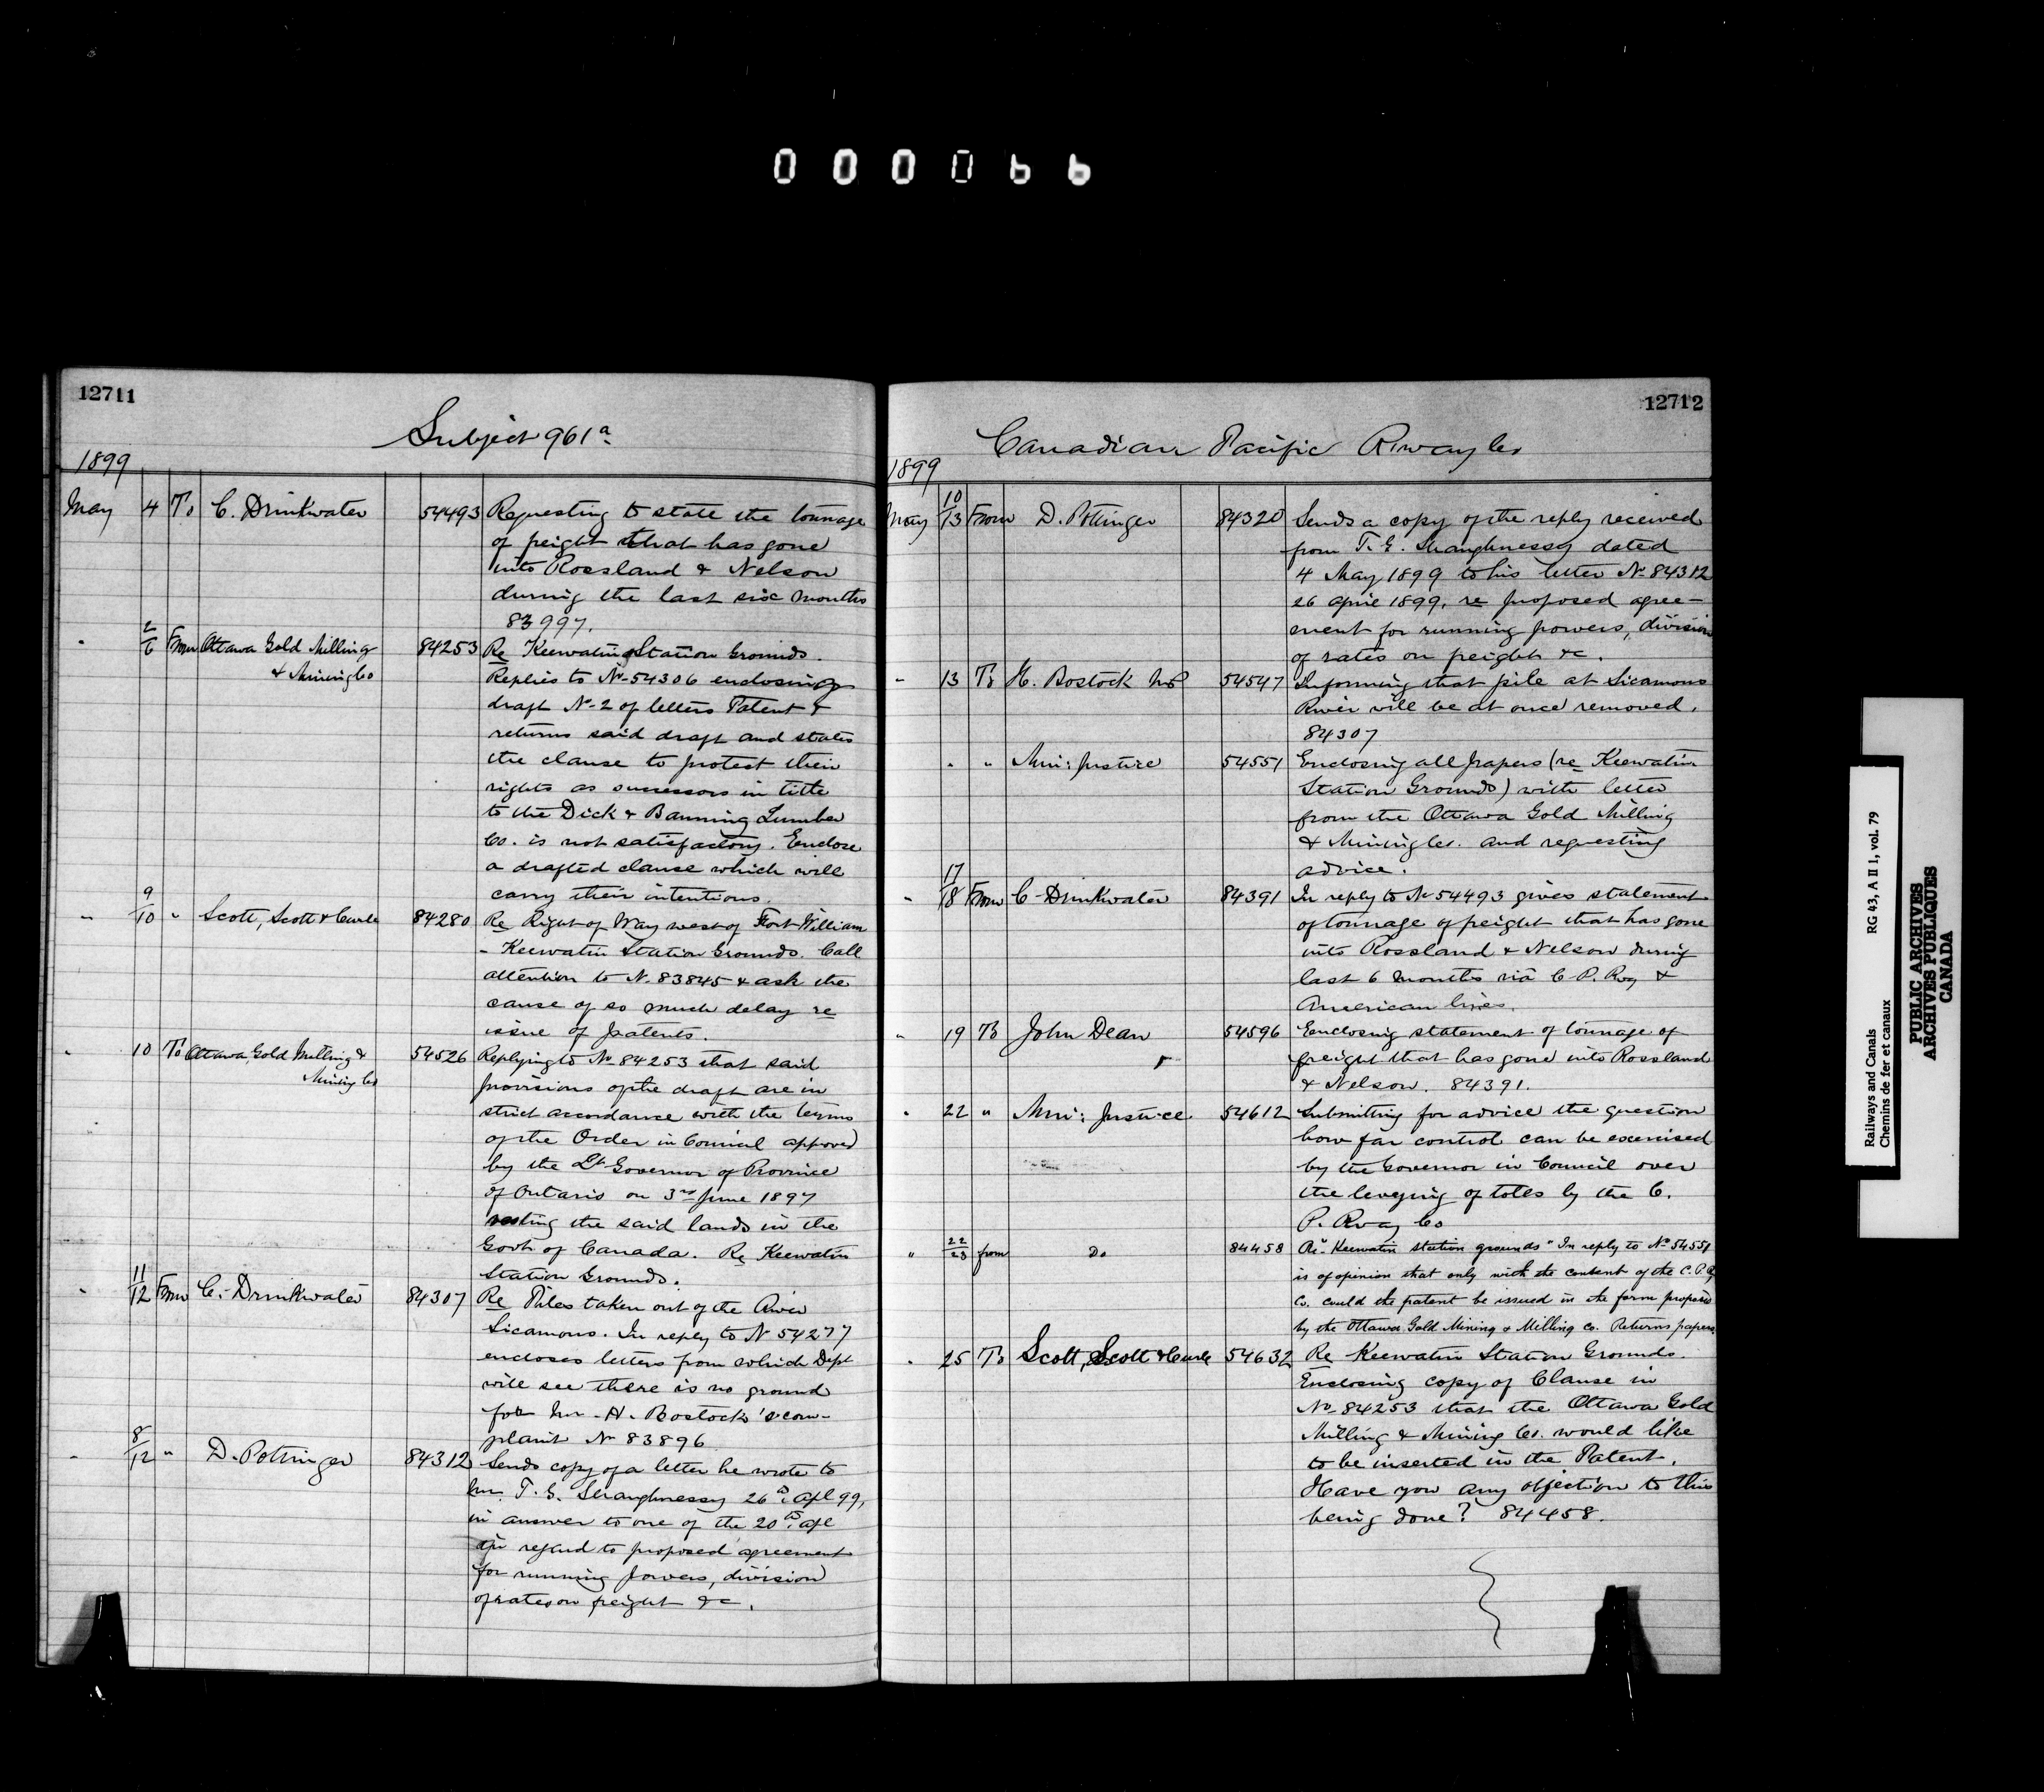 000066
12711
Subject 961a
1899
May 4 To C. Drinkwater 54493 Requesting to state the tonnage
of freight that has gone
into Rossland & Nelson
during the last six months
83997.
" 2/6 From Ottawa Gold Milling 84253 Re Keewatin Station Grounds.
& Mining Co Replies to No 54306 enclosing
draft No 2 of letters Patent &
returns said draft and states
the clause to protect their
rights as successors in title
to the Dick & Banning Lumber
Co. is not satisfactory. Enclose
a drafted clause which will
carry their intentions.
" 9/10 " Scott, Scott & Curle 84280 Re Right of Way west of Fort William
- Keewatin Station Grounds. Call
attention to No. 83845 & ask the
cause of so much delay re
issue of patents.
" 10 To Ottawa Gold Milling & 54526 Replying to No 84253 that said
Mining Co provisions of the draft are in
strict accordance with the terms
of the Order in Council approved
by the Lt Governor of Province
of Ontario on 3rd June 1897
vesting the said lands in the
Govt of Canada. Re Keewatin
Station Grounds.
" 11/12 From C. Drinkwater 84307 Re Piles taken out of the River
Sicamous. In reply to No 54277
encloses letters from which Dept
will see there is no ground
for Mr. H. Bostock's com-
plaint No 83896
" 8/12 " D. Pottinger 84312 Sends copy of a letter he wrote to
Mr. T. G. Shaughnessy 26th Apl 99,
in answer to one of the 20th Apl
in regard to proposed agreement
for running powers, division
of rates on freight &c.
12712
Canadian Pacific Rway Co
1899
May 10/13 From D. Pottinger 84320 Sends a copy of the reply received
from T. G. Shaughnessy dated
4 May 1899 to his letter No 84312
26 April 1899, re proposed agree-
ment for running powers, division
of rates on freight &c.
" 13 To H. Bostock MP 54547 Informing that pile at Sicamous
River will be at once removed.
84307
" " Min: Justice 54551 Enclosing all papers (re Keewatin
Station Grounds) with letter
from the Ottawa Gold Milling
& Mining Co. and requesting
advice.
" 17/18 From C. Drinkwater 84391 In reply to No 54493 gives statement
of tonnage of freight that has gone
into Rossland & Nelson during
last 6 months via C. P. Rwy &
American lines.
" 19 To John Dean 54596 Enclosing statement of tonnage of
freight that has gone into Rossland
& Nelson. 84391.
" 22 " Min: Justice 54612 Submitting for advice the question
how far control can be exercised
by the Governor in Council over
the levying of tolls by the C.
P. Rway Co
" 22/23 from Do 84458 Re "Keewatin station grounds" In reply to No 54551
is of opinion that only with the consent of the C.P.R.
Co. could the patent be issued in the form proposed
by the Ottawa Gold Mining & Milling Co. Returns papers.
" 25 To Scott, Scott & Curle 54632 Re Keewatin Station Grounds.
Enclosing copy of Clause in
No 84253 that the Ottawa Gold
Milling & Mining Co. would like
to be inserted in the Patent.
Have you any objection to this
being done? 84458.
Railways and Canals RG 43, A II 1, vol. 79
Chemins de fer et canaux
PUBLIC ARCHIVES
ARCHIVES PUBLIQUES
CANADA